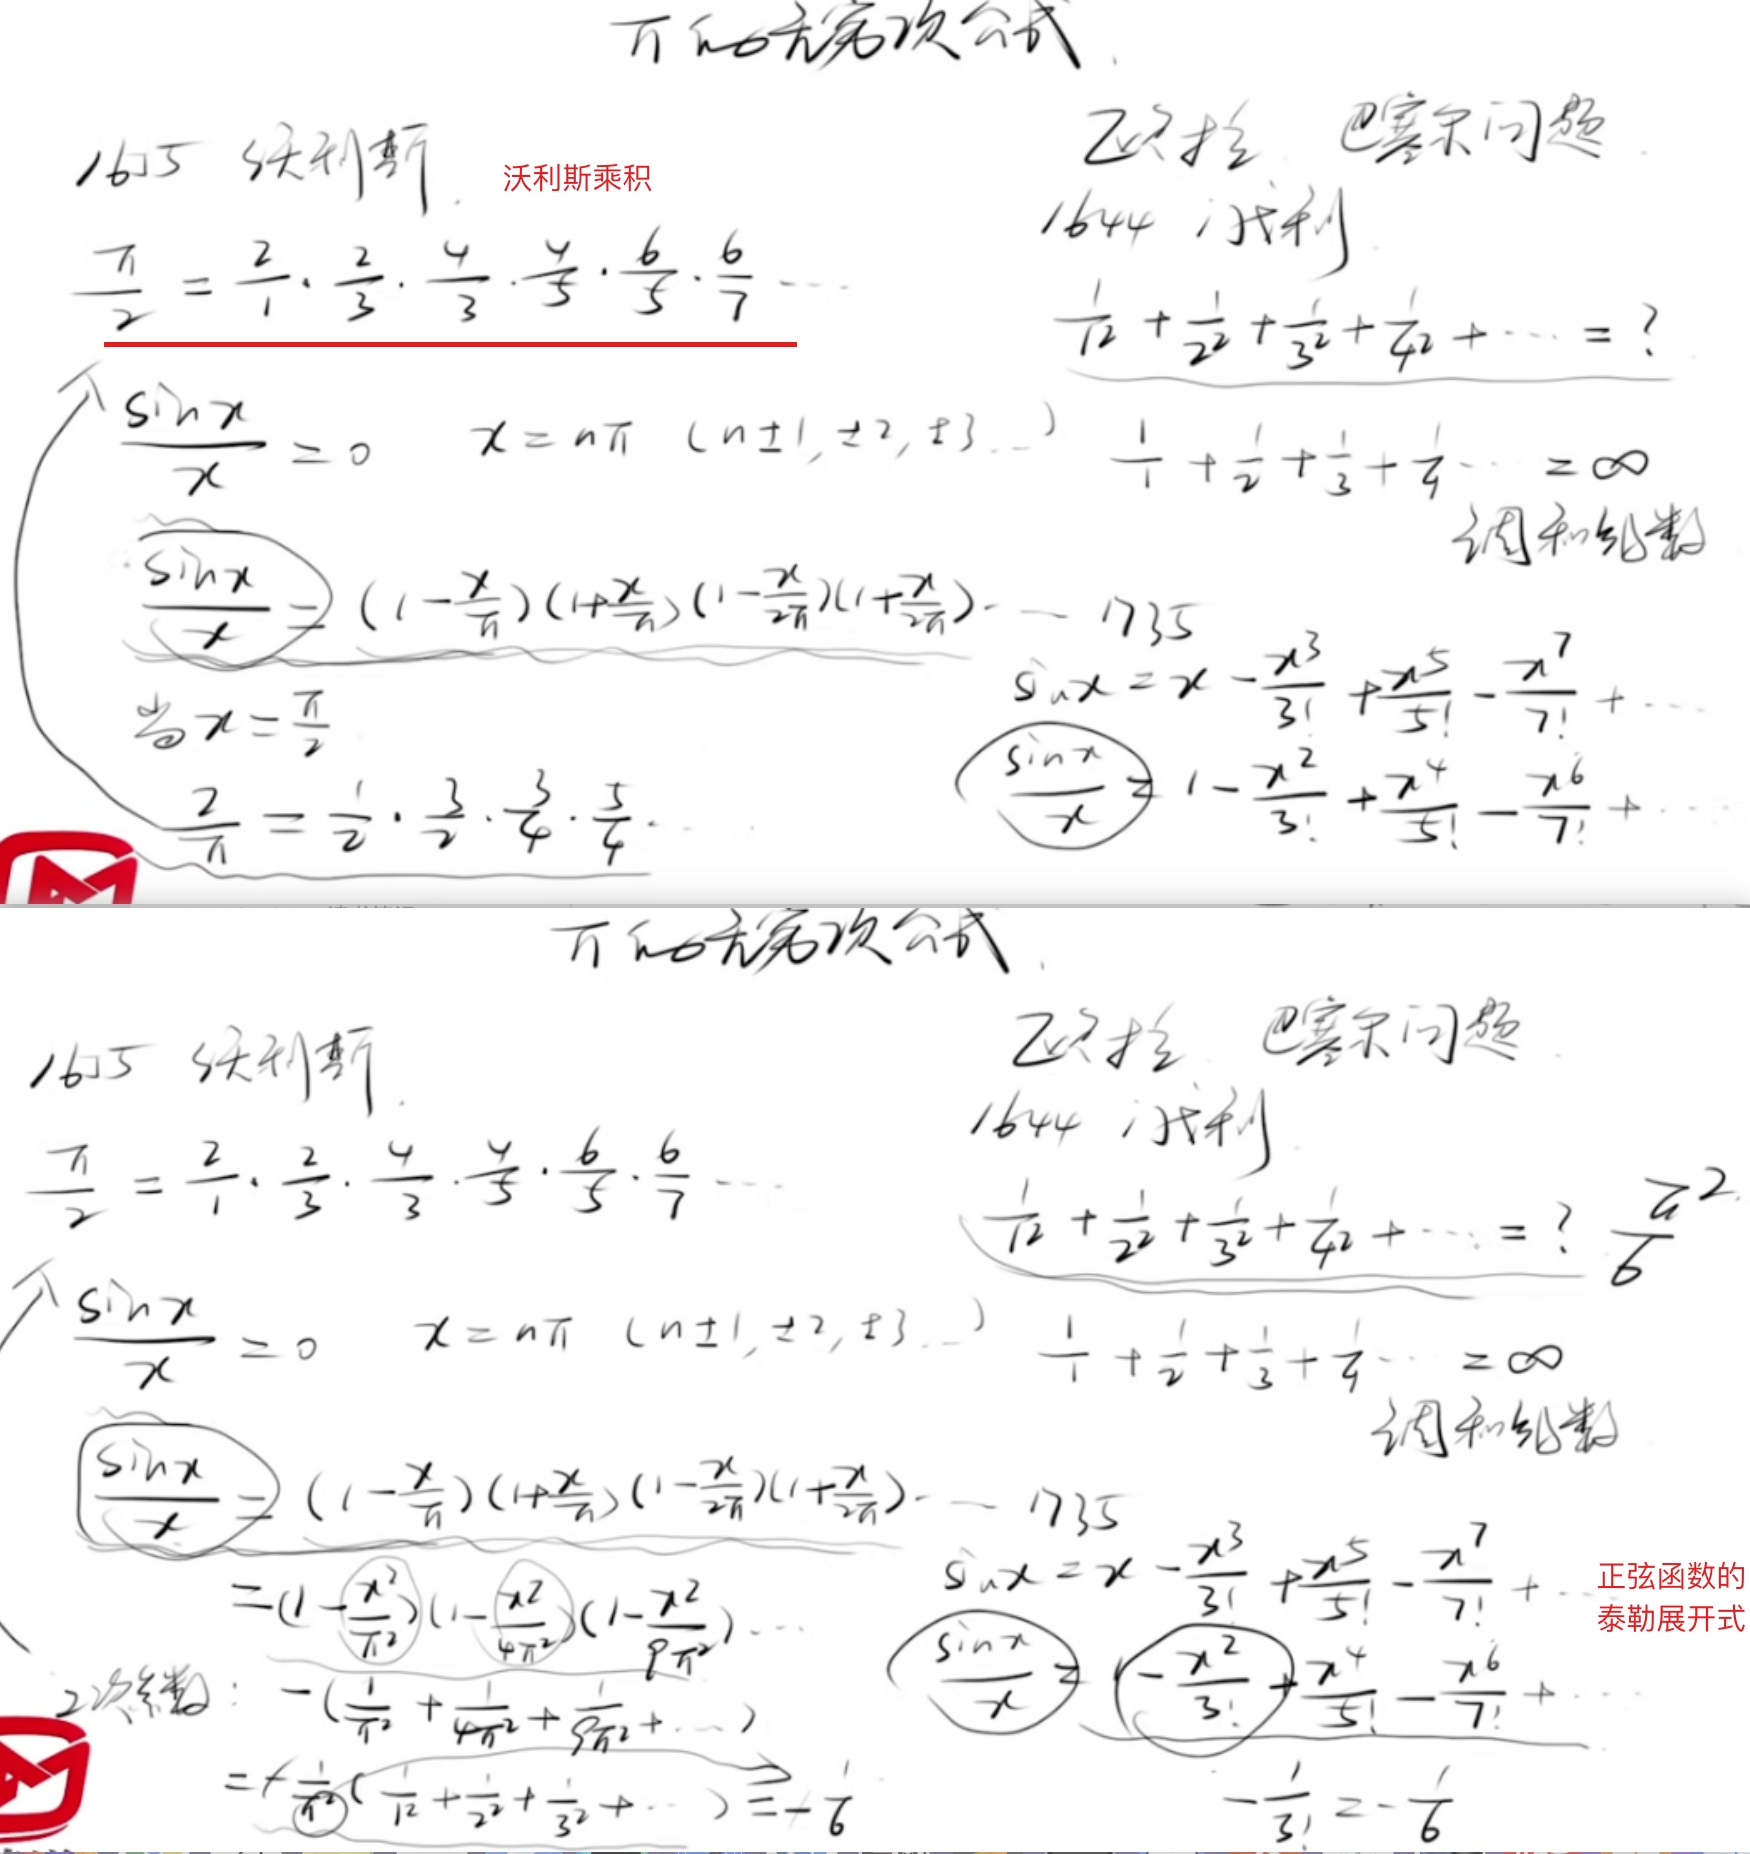 π的无穷次公式
1655 沃利斯 沃利斯乘积
π/2 = 2/1 · 2/3 · 4/3 · 4/5 · 6/5 · 6/7 ...
sinx/x = 0 x = nπ (n±1, ±2, ±3...)
sinx/x = (1-x/π)(1+x/π)(1-x/2π)(1+x/2π)...
当x=π/2
2/π = 1/2 · 3/2 · 3/4 · 5/4 ...
欧拉 巴塞尔问题
1644
1/1² + 1/2² + 1/3² + 1/4² + ... = ?
1/1 + 1/2 + 1/3 + 1/4 ... = ∞
调和级数
1735
sinx = x - x³/3! + x⁵/5! - x⁷/7! + ...
sinx/x = 1 - x²/3! + x⁴/5! - x⁶/7! + ...
π的无穷次公式
1655 沃利斯
π/2 = 2/1 · 2/3 · 4/3 · 4/5 · 6/5 · 6/7 ...
sinx/x = 0 x = nπ (n±1, ±2, ±3...)
sinx/x = (1-x/π)(1+x/π)(1-x/2π)(1+x/2π)...
=(1-x²/π²)(1-x²/4π²)(1-x²/9π²)...
2次系数: -(1/π² + 1/4π² + 1/9π² + ...)
= -1/π²(1/1² + 1/2² + 1/3² + ...) = -1/6
欧拉 巴塞尔问题
1644
1/1² + 1/2² + 1/3² + 1/4² + ... = ? π²/6
1/1 + 1/2 + 1/3 + 1/4 ... = ∞
调和级数
1735
sinx = x - x³/3! + x⁵/5! - x⁷/7! + ...
正弦函数的
泰勒展开式
sinx/x = - x²/3! + x⁴/5! - x⁶/7! + ...
-1/3! = -1/6